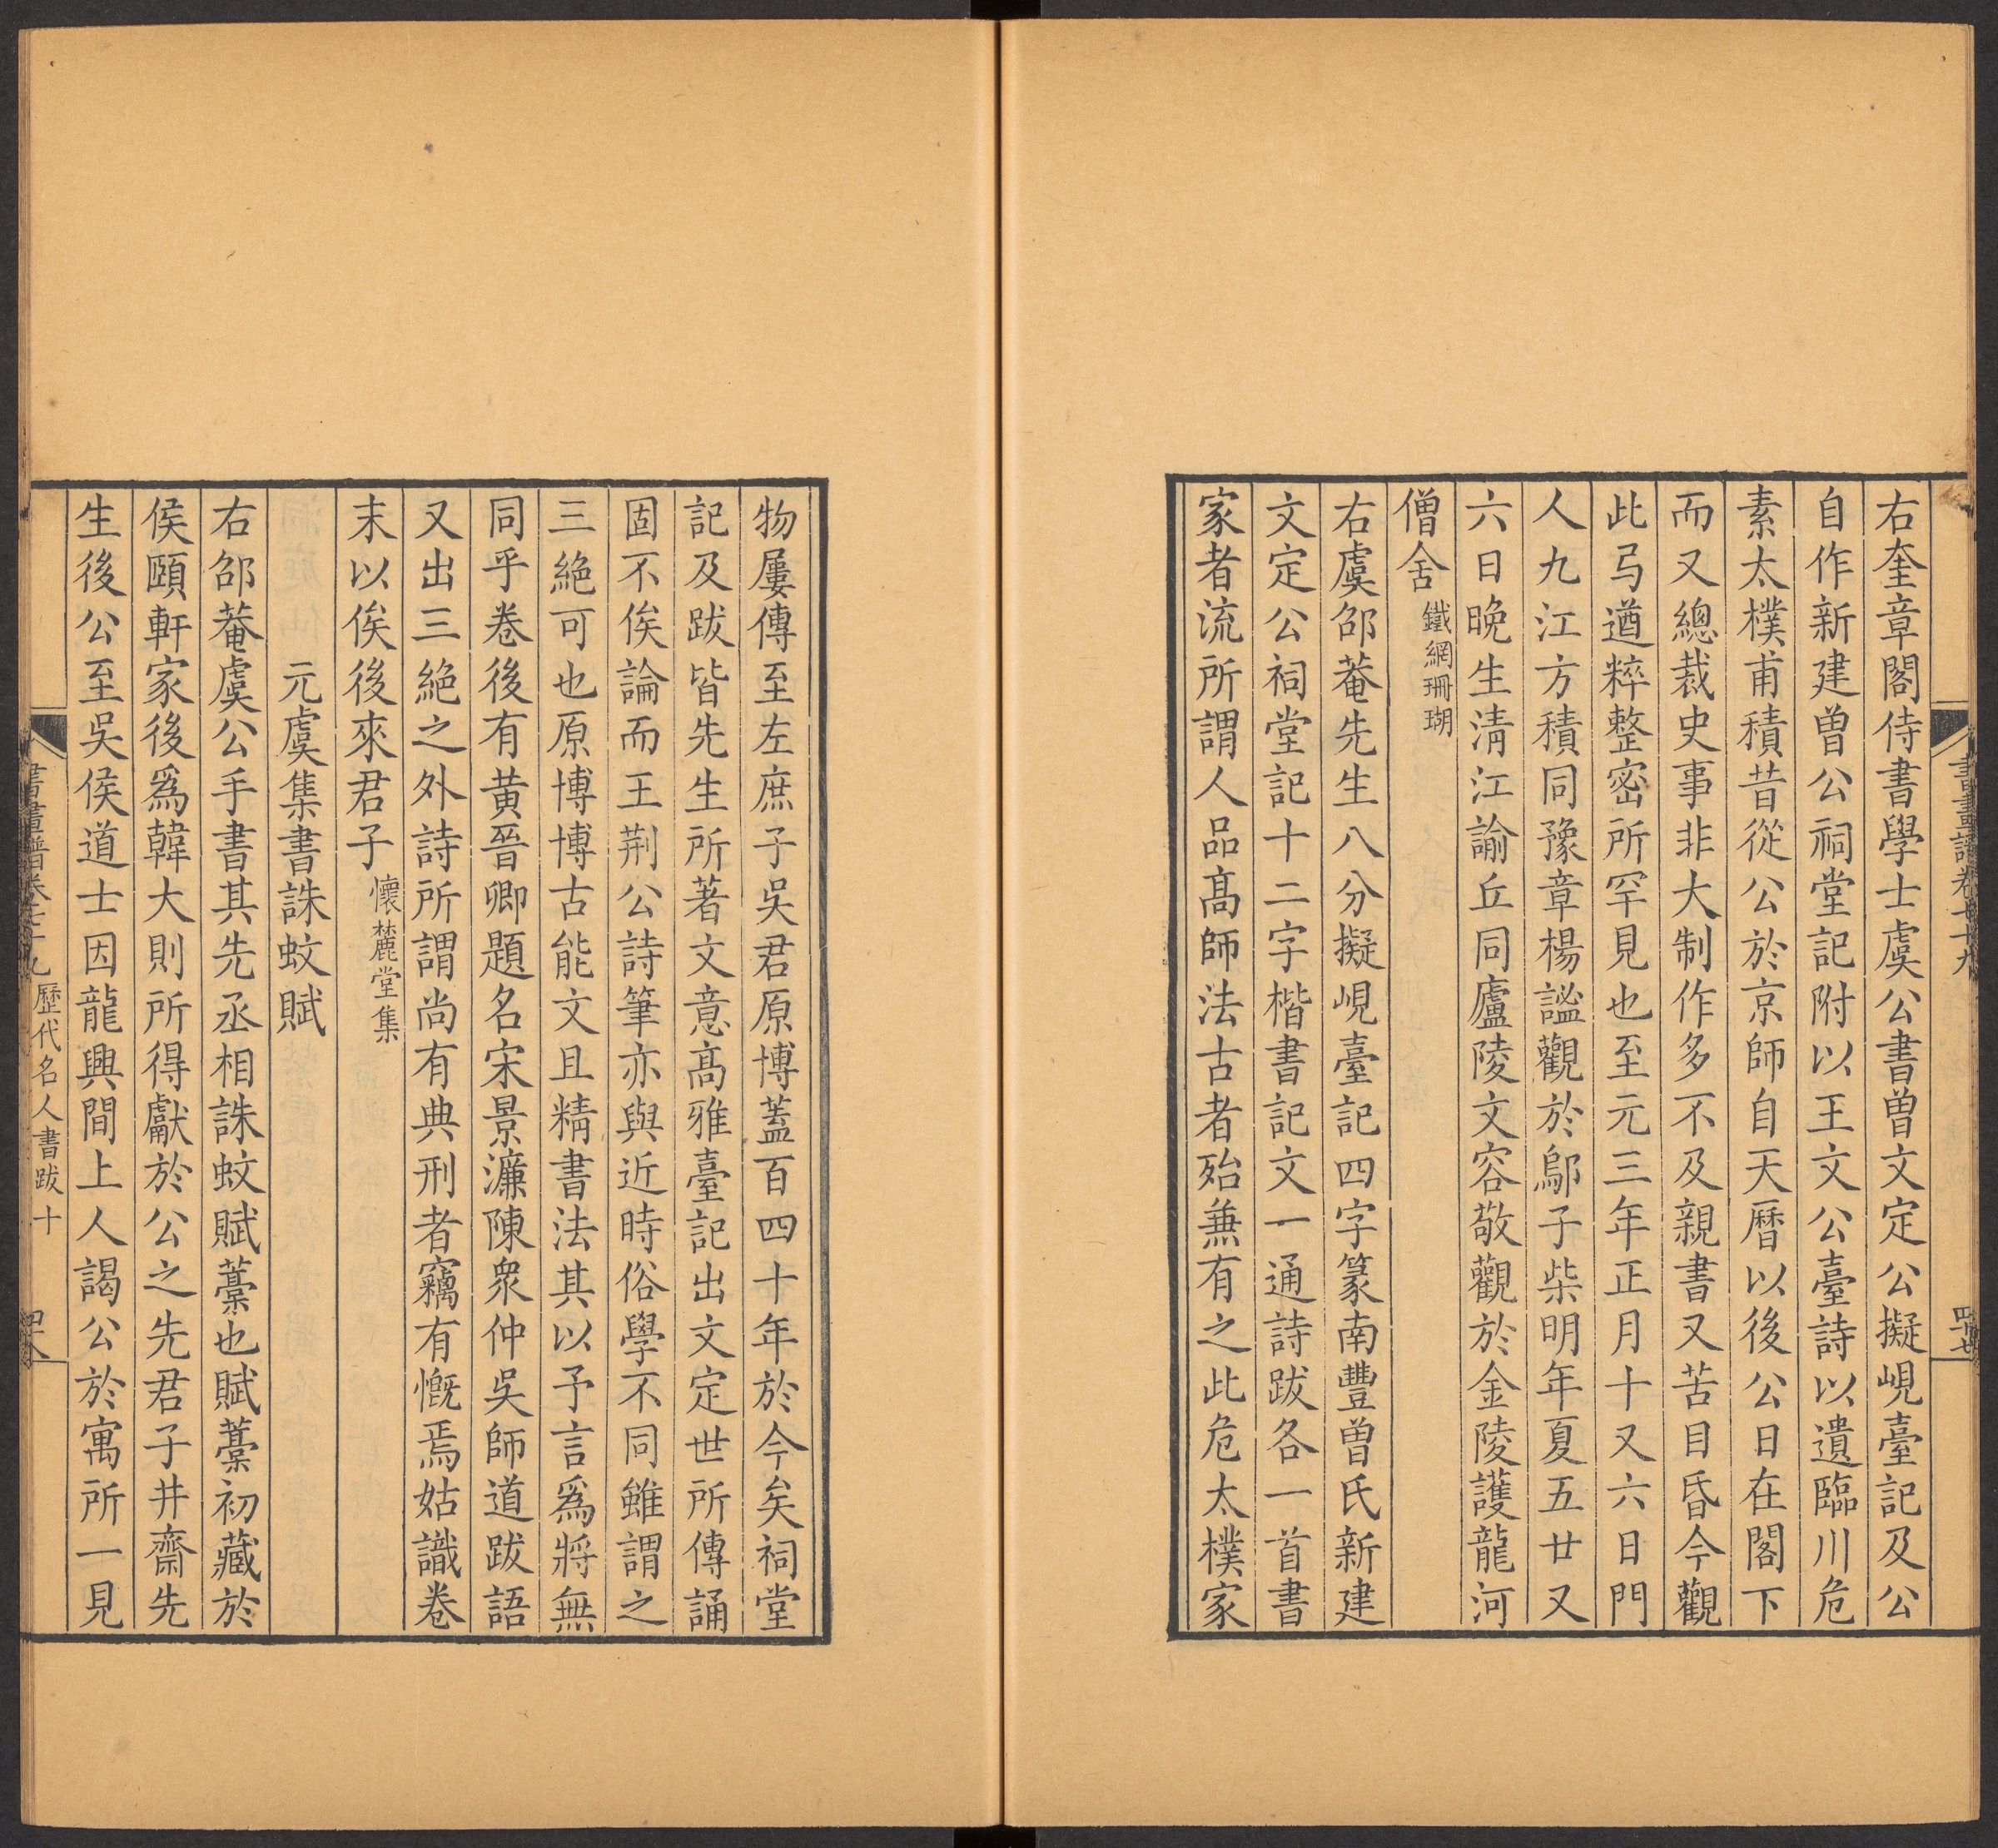 書畫譜卷七十九
四十七
右奎章閣侍書學士虞公書曾文定公擬峴臺記及公
自作新建曾公祠堂記附以王文公臺詩以遺臨川危
素太樸甫積昔從公於京師自天曆以後公日在閣下
而又總裁史事非大制作多不及親書又苦目昏今觀
此弓遒粹整密所罕見也至元三年正月十又六日門
人九江方積同豫章楊謐觀於鄔子柴明年夏五廿又
六日晚生清江諭丘同廬陵文容敬觀於金陵護龍河
僧舍鐵網珊瑚
右虞邵菴先生八分擬峴臺記四字篆南豐曾氏新建
文定公祠堂記十二字楷書記文一通詩跋各一首書
家者流所謂人品高師法古者殆兼有之此危太樸家
物屢傳至左庶子吳君原博蓋百四十年於今矣祠堂
記及跋皆先生所著文意高雅臺記出文定世所傳誦
固不俟論而王荆公詩筆亦與近時俗學不同雖謂之
三絕可也原博博古能文且精書法其以予言爲將無
同乎卷後有黄晉卿題名宋景濂陳衆仲吳師道跋語
又出三絕之外詩所謂尚有典刑者竊有慨焉姑識卷
末以俟後來君子懷麓堂集
元虞集書誅蚊賦
右邵菴虞公手書其先丞相誅蚊賦藁也賦藁初藏於
侯頤軒家後爲韓大則所得獻於公之先君子井齋先
生後公至吳侯道士因龍興間上人謁公於寓所一見
書畫譜卷七十九 歷代名人書跋十
四十八